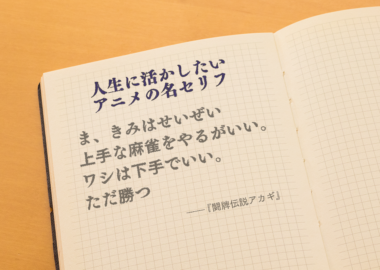 人生に活かしたい
アニメの名セリフ
ま、きみはせいぜい
上手な麻雀をやるがいい。
ワシは下手でいい。
ただ勝つ
——『闘牌伝説アカギ』